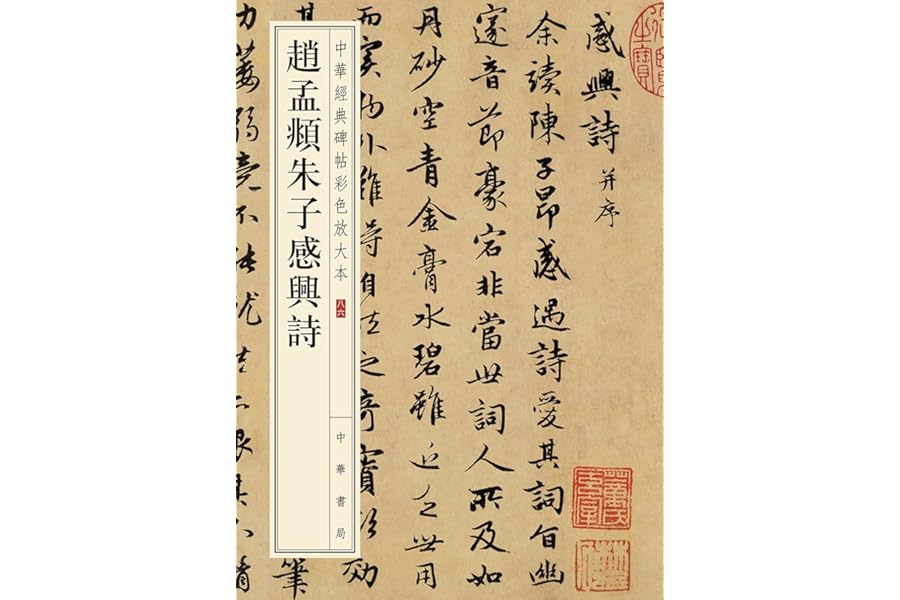 感興詩 并序
余讀陳子昂感遇詩愛其詞旨幽
邃音節豪宕非當世詞人所及如
丹砂空青金膏水碧雖近乏世用
而實物外難得自然之奇寶欲効
其
筆
力萎弱竟不能就
中華經典碑帖彩色放大本
八六
中華書局
趙孟頫朱子感興詩